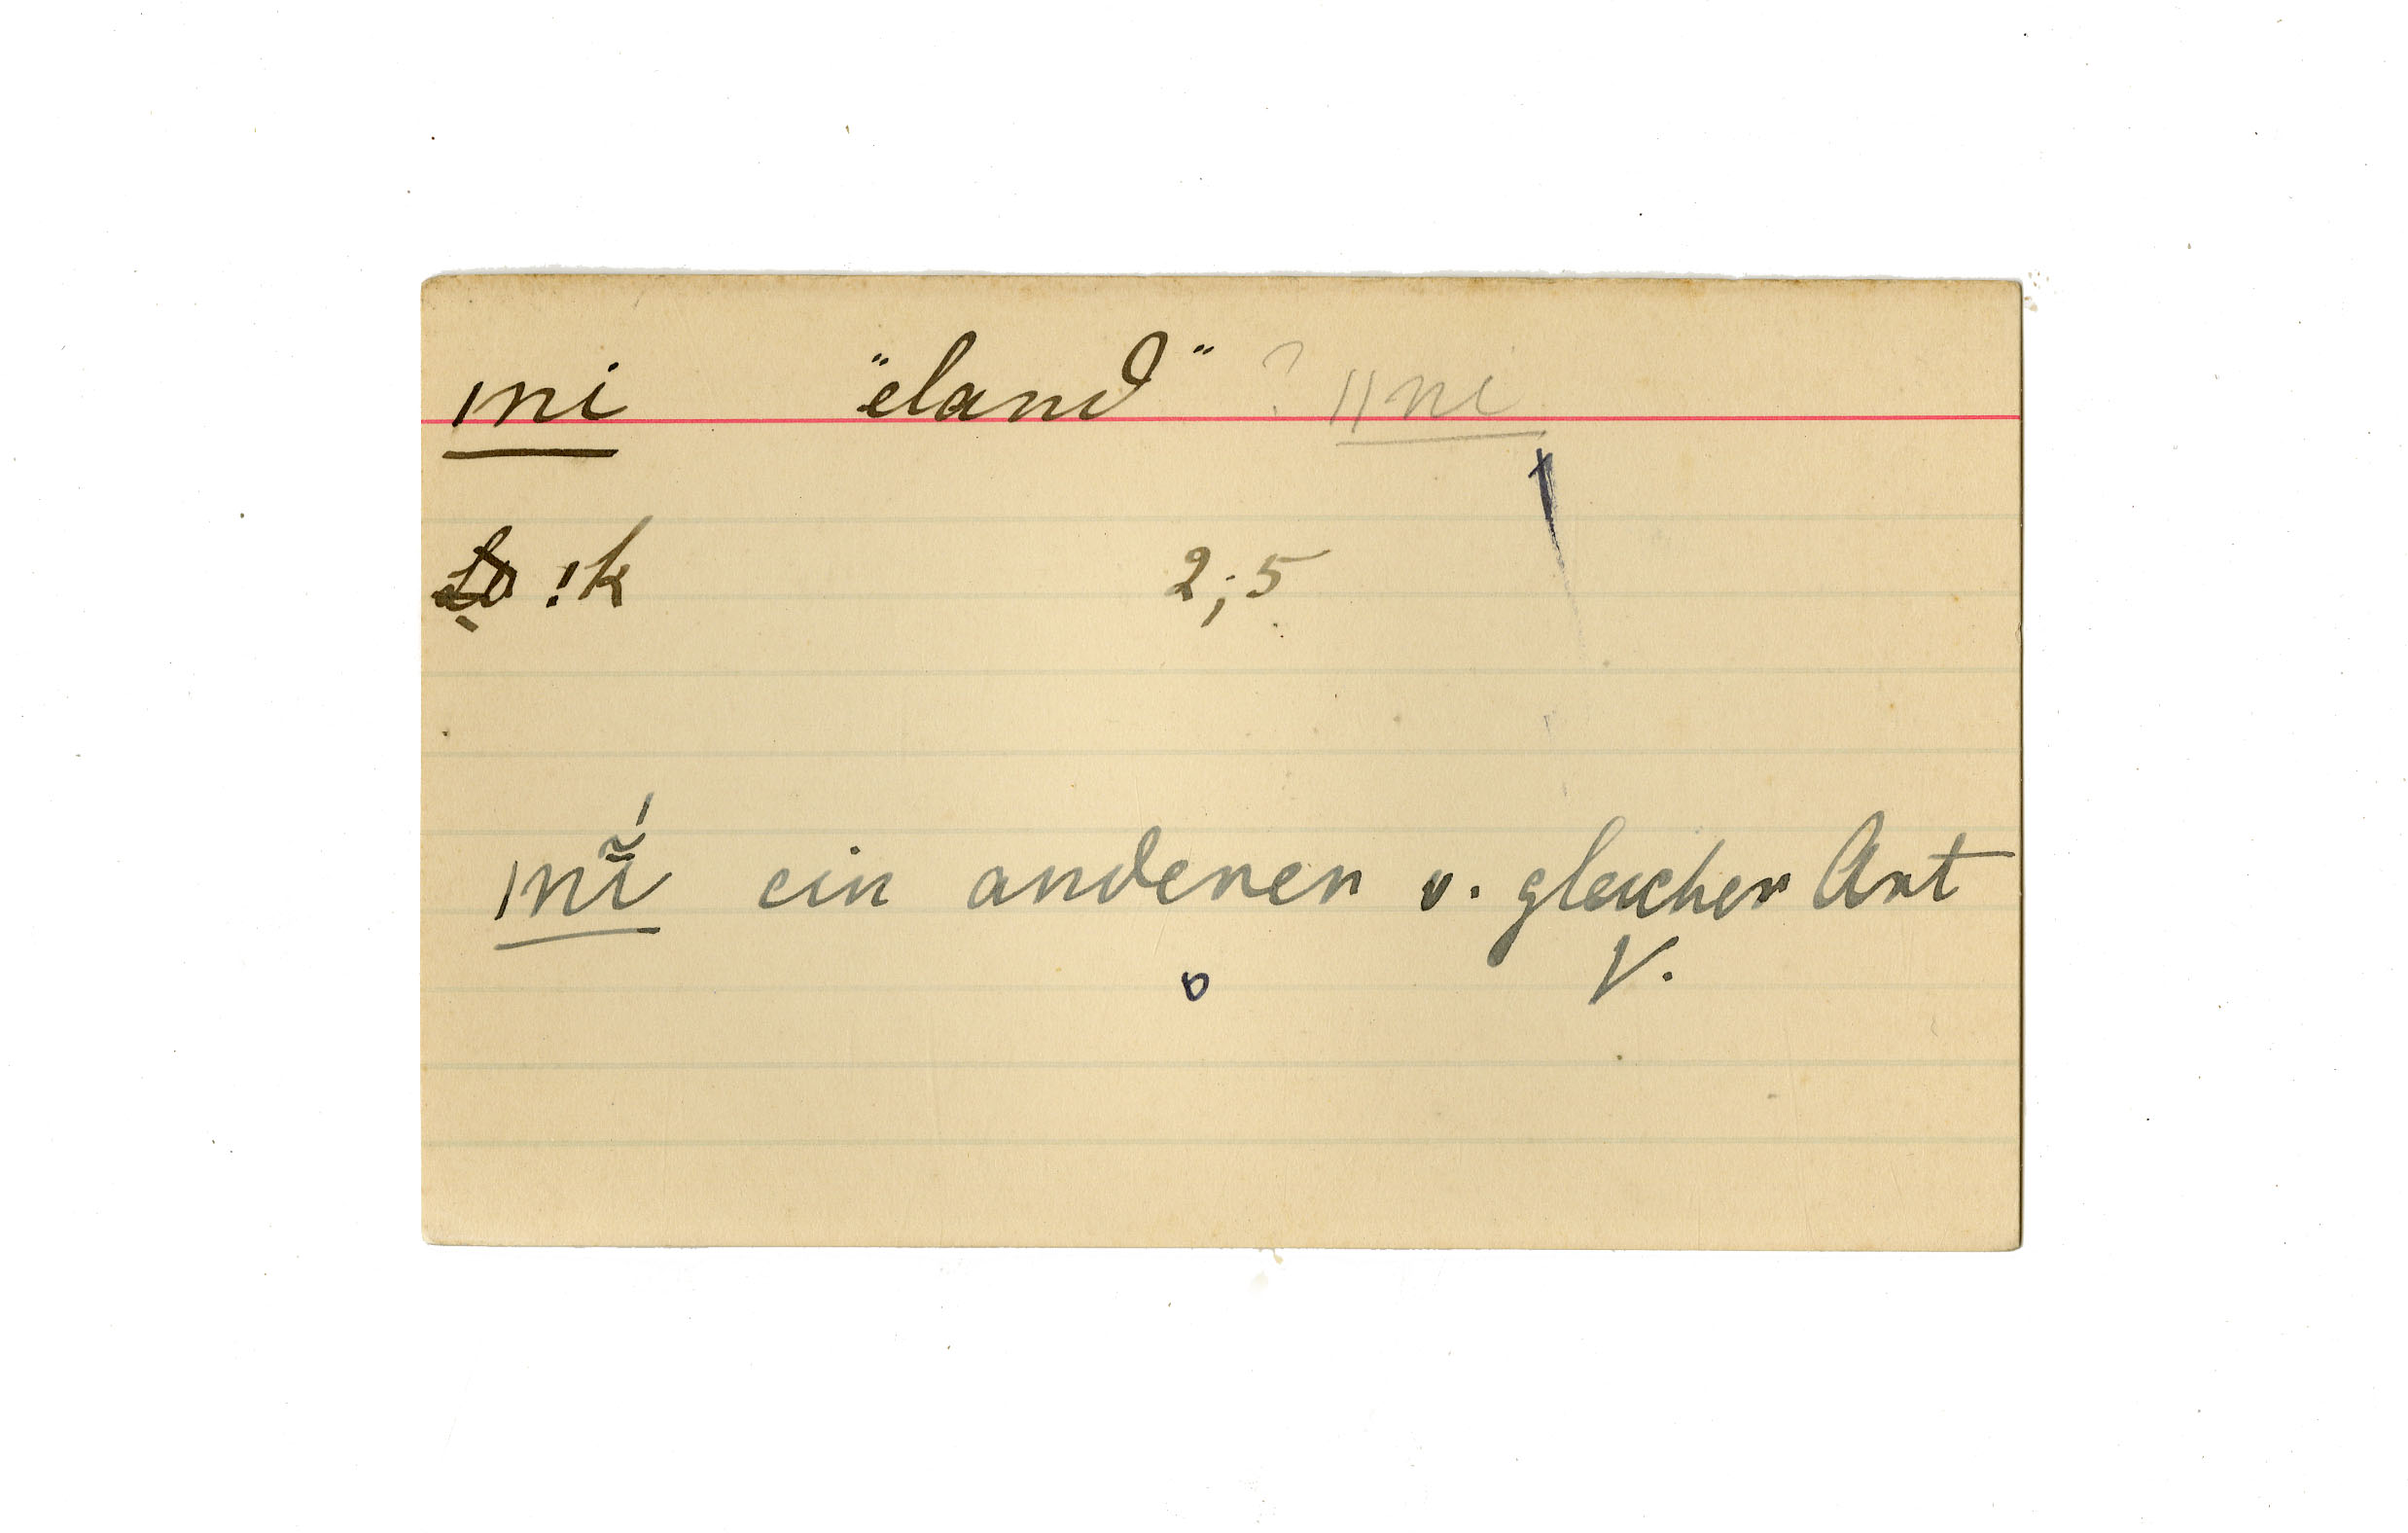 ǀni "eland" ? ǁni
!k 2;5
ǀnĩ́ ein anderer v. gleicher Art
V.